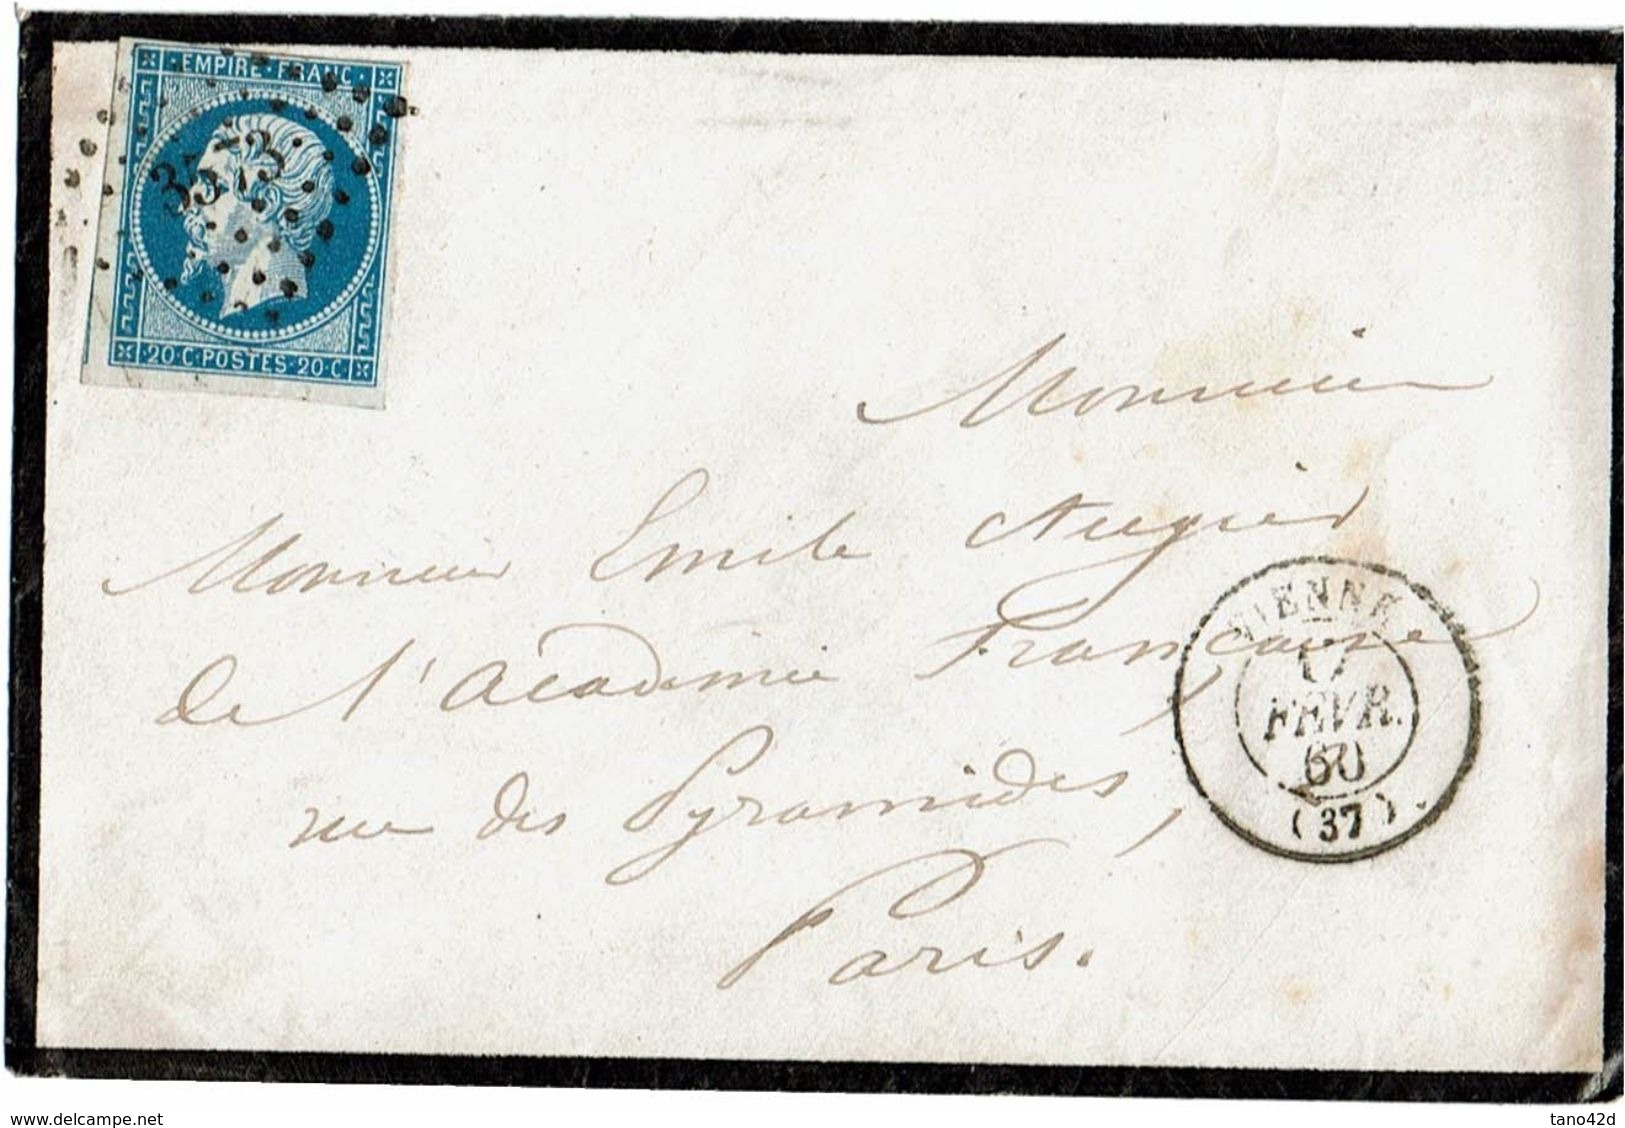 EMPIRE · FRANC ·
3573
· 20 · C · POSTES · 20 · C ·
Monsieur
Monsieur Emile Augier
de l'Académie Française,
rue des Pyramides,
Paris.
VIENNE
17
FEVR.
60
(37)
www.delcampe.net
tano42d